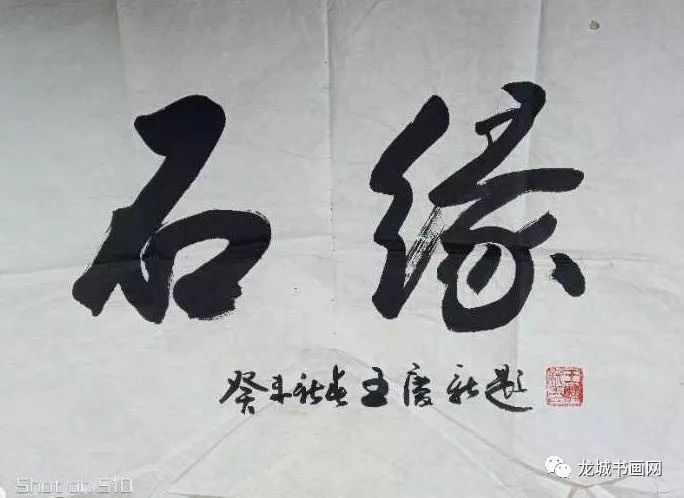 石缘
癸未新春王庆新题
Shot on S10
龙城书画网